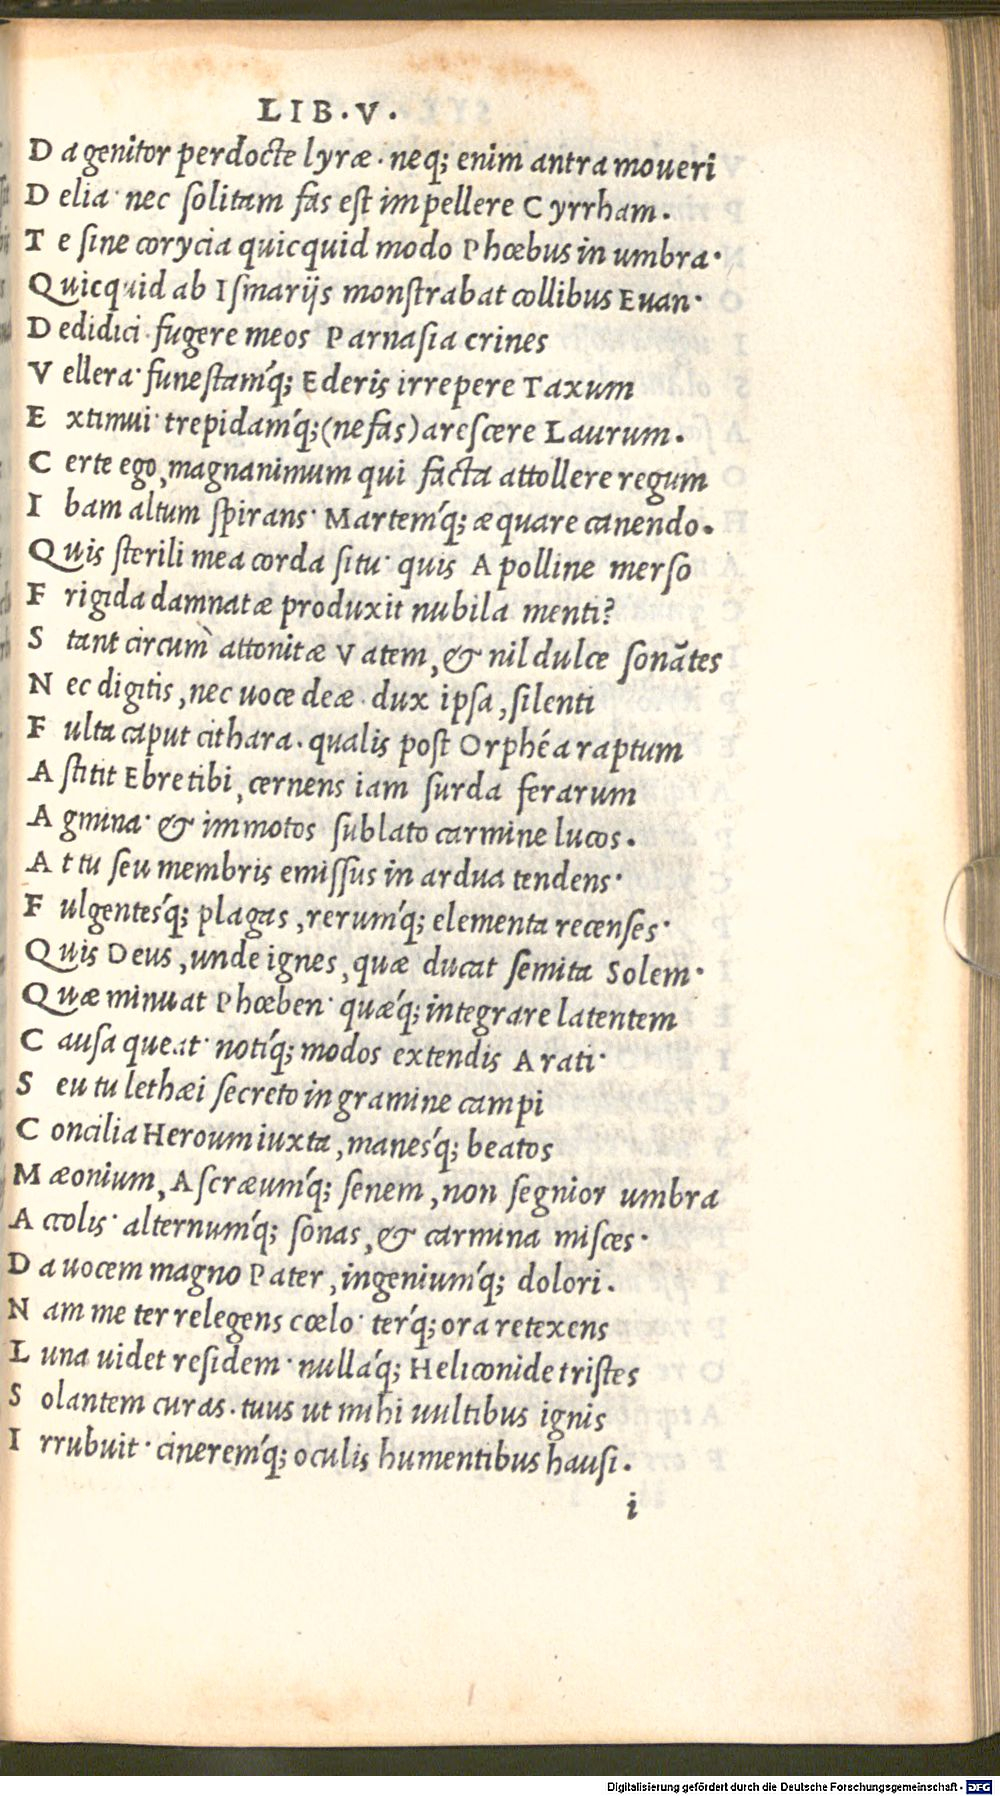 LIB.V.
D a genitor perdocte lyræ. neq; enim antra moueri
D elia· nec ſolitam fas eſt impellere Cyrrham.
T e ſine corycia quicquid modo Phœbus in umbra·
Quicquid ab Iſmarijs monſtrabat collibus Euan·
D edidici· fugere meos Parnaſia crines
V ellera· funeſtamq́; Ederis irrepere Taxum
E xtimui· trepidamq́;(nefas)areſcere Laurum.
C erte ego,magnanimum qui facta attollere regum
I bam altum ſpirans· Martemq́; æquare canendo.
Quis ſterili mea corda ſitu· quis Apolline merſo
F rigida damnatæ produxit nubila menti?
S tant circum̀ attonitæ Vatem,& nil dulce ſonātes
N ec digitis,nec uoce deæ· dux ipſa,ſilenti
F ulta caput cithara. qualis poſt Orphéa raptum
A ſtitit Ebre tibi,cernens iam ſurda ferarum
A gmina· & immotos ſublato carmine lucos.
A t tu ſeu membris emiſſus in ardua tendens·
F ulgentesq́; plagas,rerumq́; elementa recenſes·
Quis Deus,unde ignes,quæ ducat ſemita Solem·
Quæ minuat Phœben· quæq́; integrare latentem
C auſa queat· notiq́; modos extendis Arati·
S eu tu lethæi ſecreto in gramine campi
C oncilia Heroum iuxta,manesq́; beatos
M æonium,Aſcræumq́; ſenem,non ſegnior umbra
A ccolis· alternumq́; ſonas,& carmina miſces·
D a uocem magno Pater,ingeniumq́; dolori.
N am me ter relegens cœlo· terq́; ora retexens
L una uidet reſidem· nullaq́; Heliconide triſtes
S olantem curas. tuus ut mihi uultibus ignis
I rrubuit· cineremq́; oculis humentibus hauſi.
i
Digitalisierung gefördert durch die Deutsche Forschungsgemeinschaft - DFG